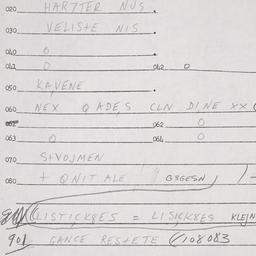 020 HARTTER NUS.
030 VELISTE NIS.
040 0
041 0 042 0
050 KAVENE.
060 NEX QADES CLN DI,NE XX
062 0
063 0 064 0
070 STVOJMEN
080 + QNIT ALE GSGESN
LISTICK8ES = LISICK8ES KLEJN
901 GANCE RESTETE 108083